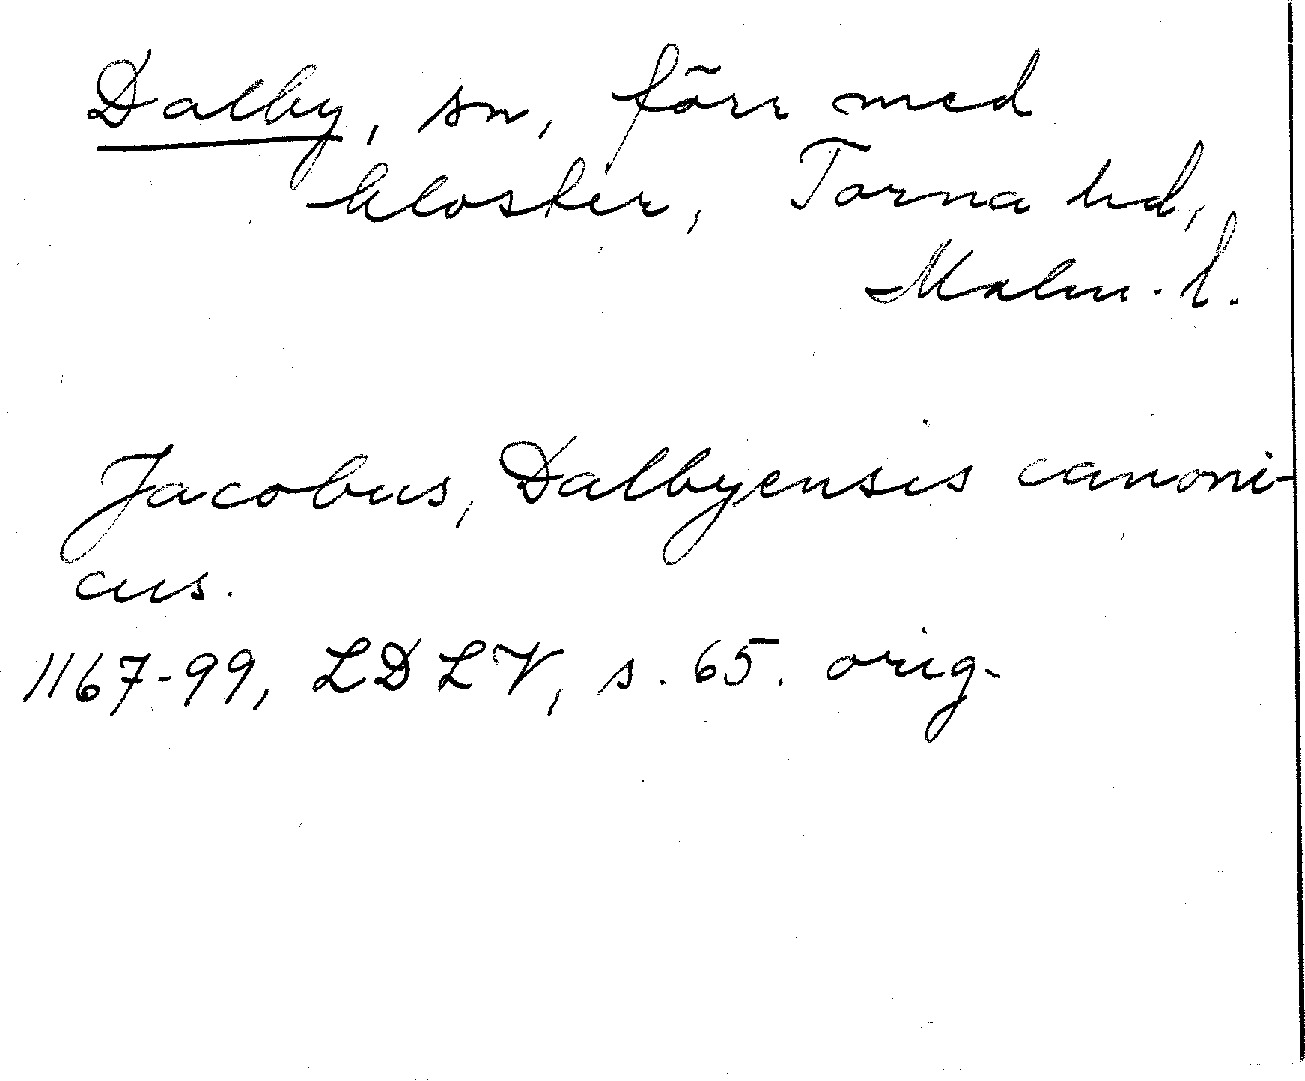 Dalby, sn, förr med
kloster, Torna hd,
Malm. l.
Jacobus, Dalbyensis canoni-
cus.
1167-99, LDLV, s. 65. orig.